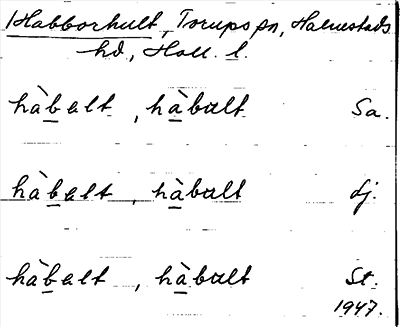 Habborhult, Torups sn, Halmstads
hd, Hall. l.
hàbalt, hàbalt Sa.
hàbalt, hàbalt dj.
hàbalt, hàbalt St.
1947.